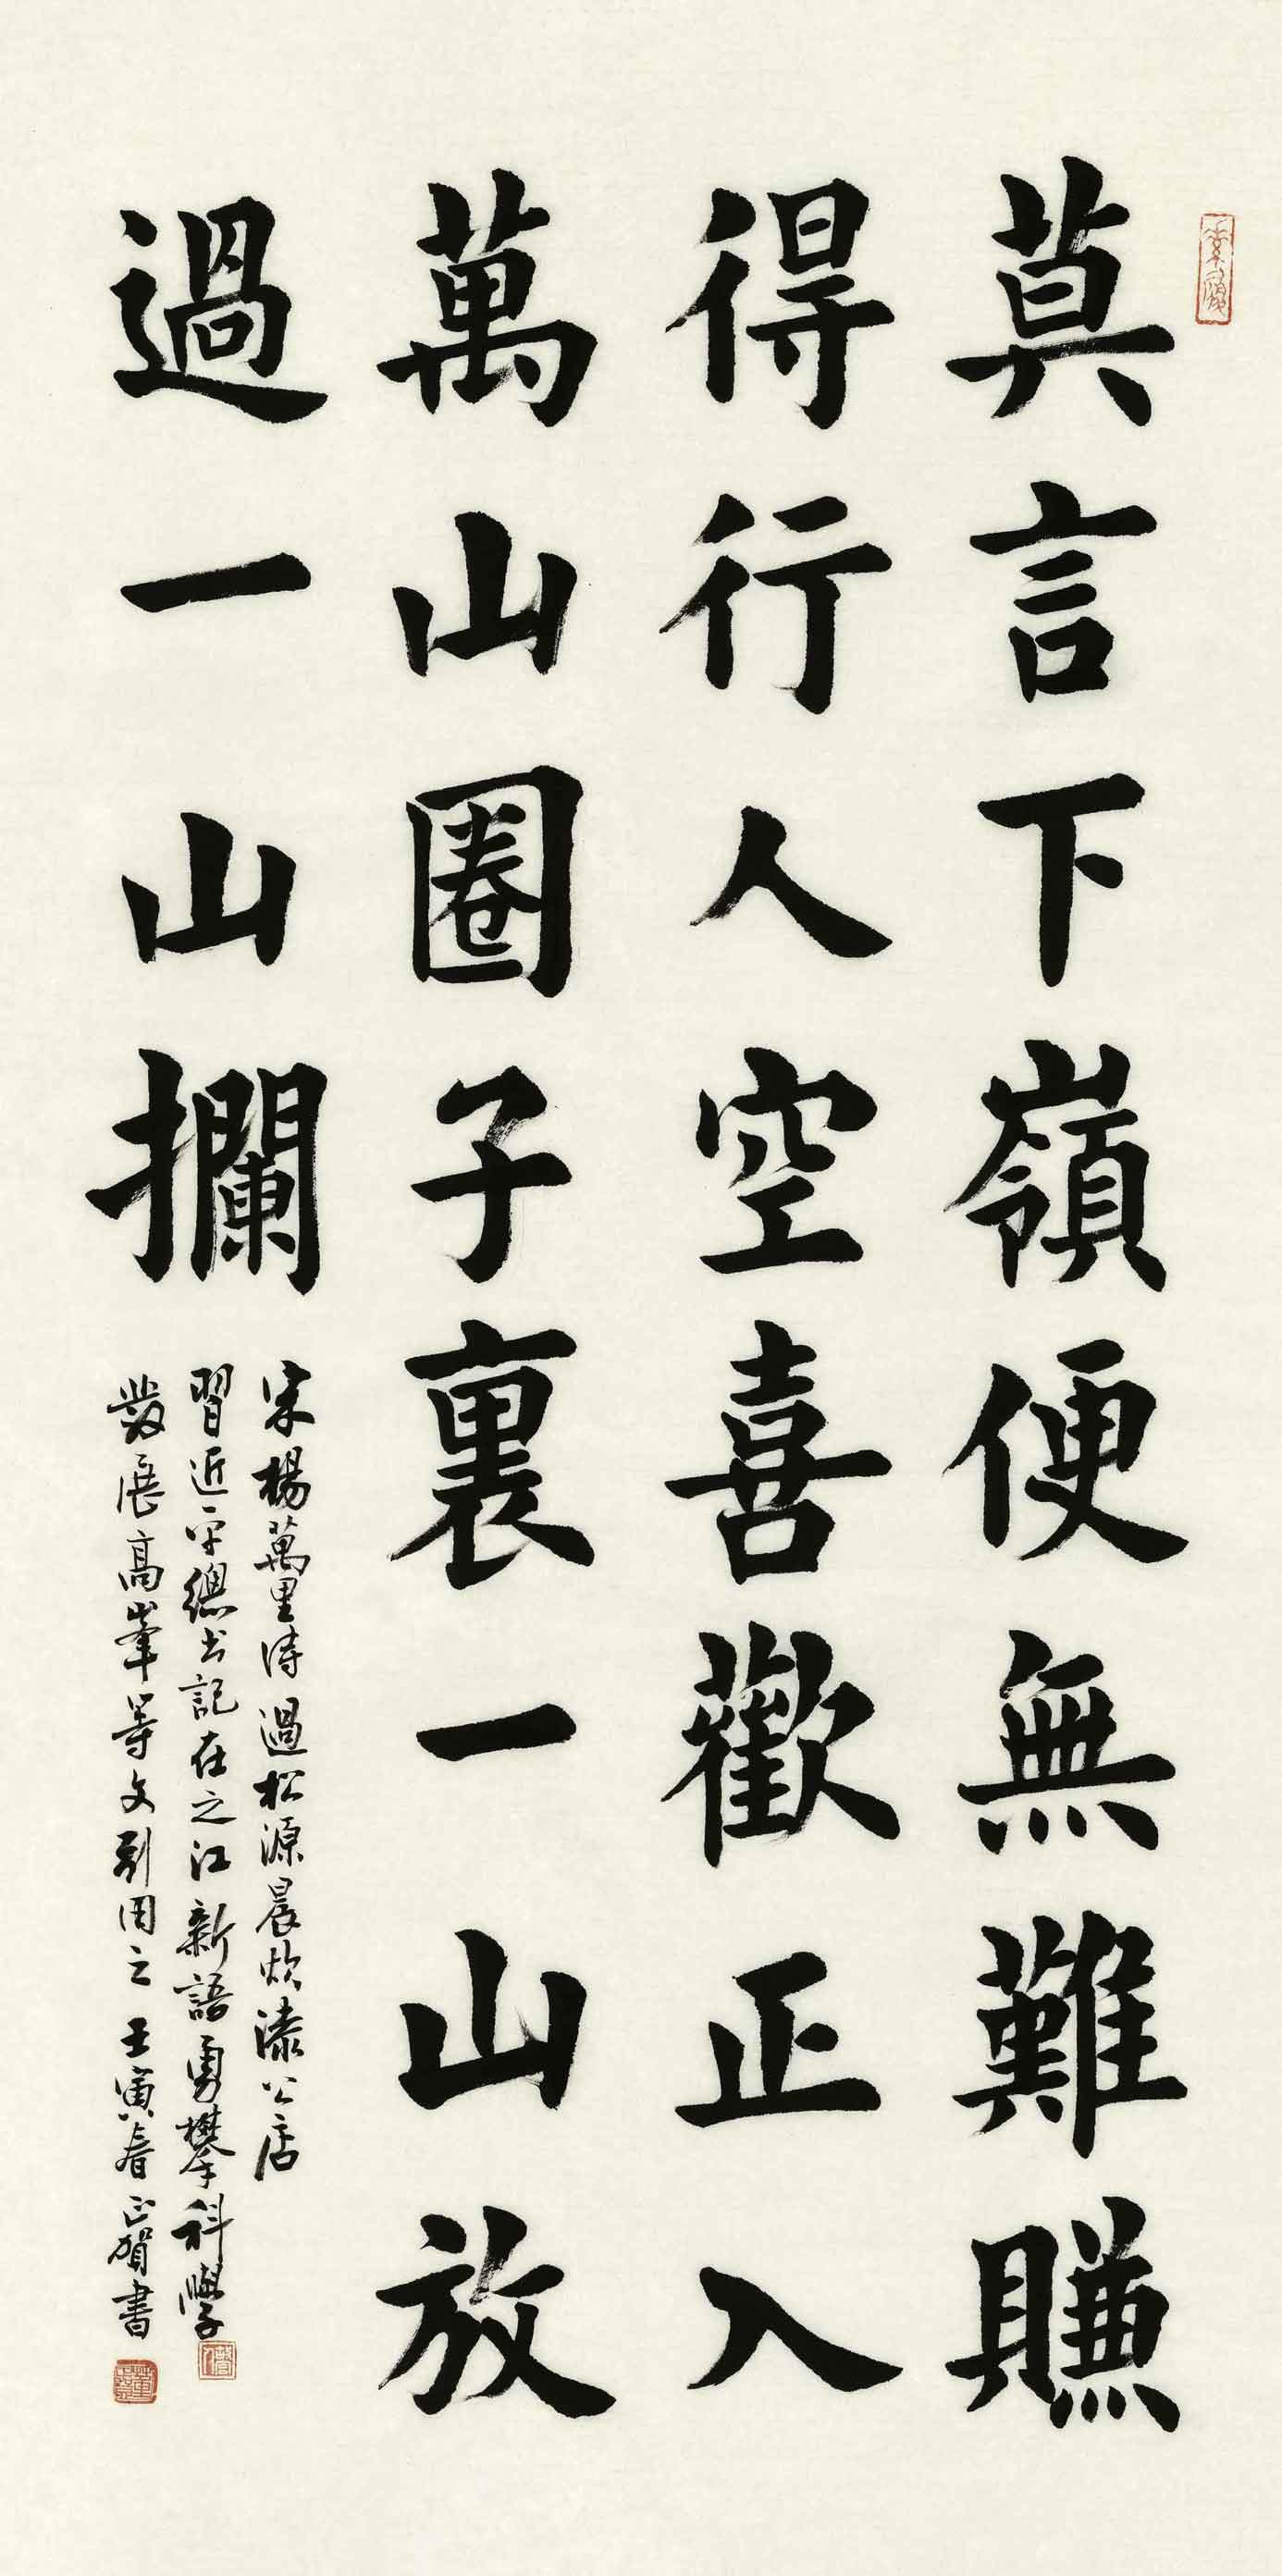 莫言下嶺便無難賺
得行人空喜歡正入
萬山圈子裏一山放
過一山攔
宋楊萬里詩過松源晨炊漆公店
習近平總書記在之江新語勇攀科學
發展高峯等文引用之 壬寅春正賀書